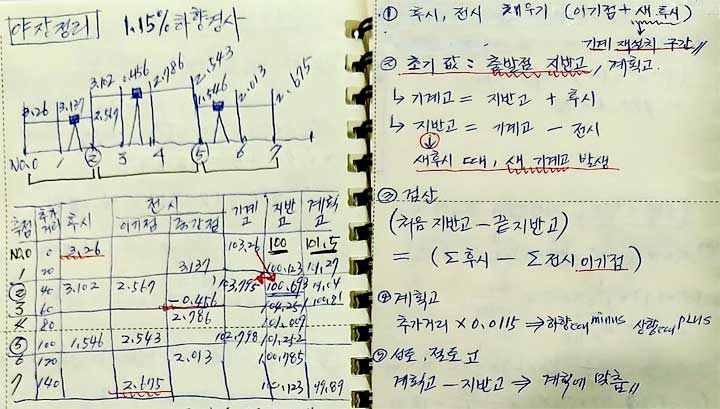 야장정리 1.15% 하향경사
3.26 3.137 3.102 2.567 0.456 2.786 2.543 1.546 2.013 2.675
NO.0 1 ② 3 4 ⑤ 6 7
측점 추가거리 후시 전시 기계고 지반고 계획고
이기점 중간점
NO.0 0 3.26 103.26 100 101.5
1 20 3.137 100.123
② 40 3.102 2.567 103.795 100.693
3 60 -0.456 104.251
4 80 2.786 101.009
⑤ 100 1.546 2.543 102.798 101.252
6 120 2.013 100.785
7 140 2.675 100.123 99.89
① 후시, 전시 채우기 (이기점 + 새후시)
기계 재설치 구간
② 초기값 : 출발점 지반고, 계획고.
↳ 기계고 = 지반고 + 후시
↳ 지반고 = 기계고 - 전시
새후시 때, 새 기계고 발생
③ 검산
(처음 지반고 - 끝 지반고)
= (Σ후시 - Σ전시 이기점)
④ 계획고
추가거리 × 0.0115 ⇒ 하향 minus 상향 plus
⑤ 성토, 절토고
계획고 - 지반고 ⇒ 계획에 맞춤